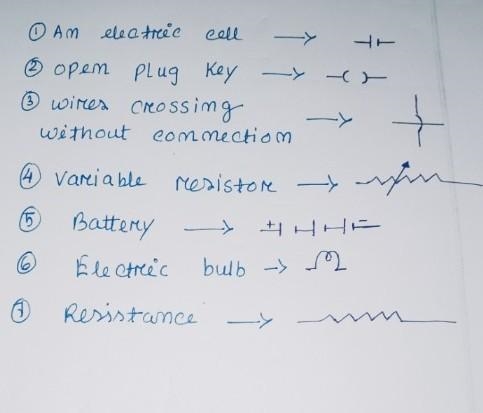 ① An electric cell →
② open plug key → -( )-
③ wires crossing
without connection →
④ Variable resistor →
⑤ Battery → + -
⑥ Electric bulb →
⑦ Resistance →